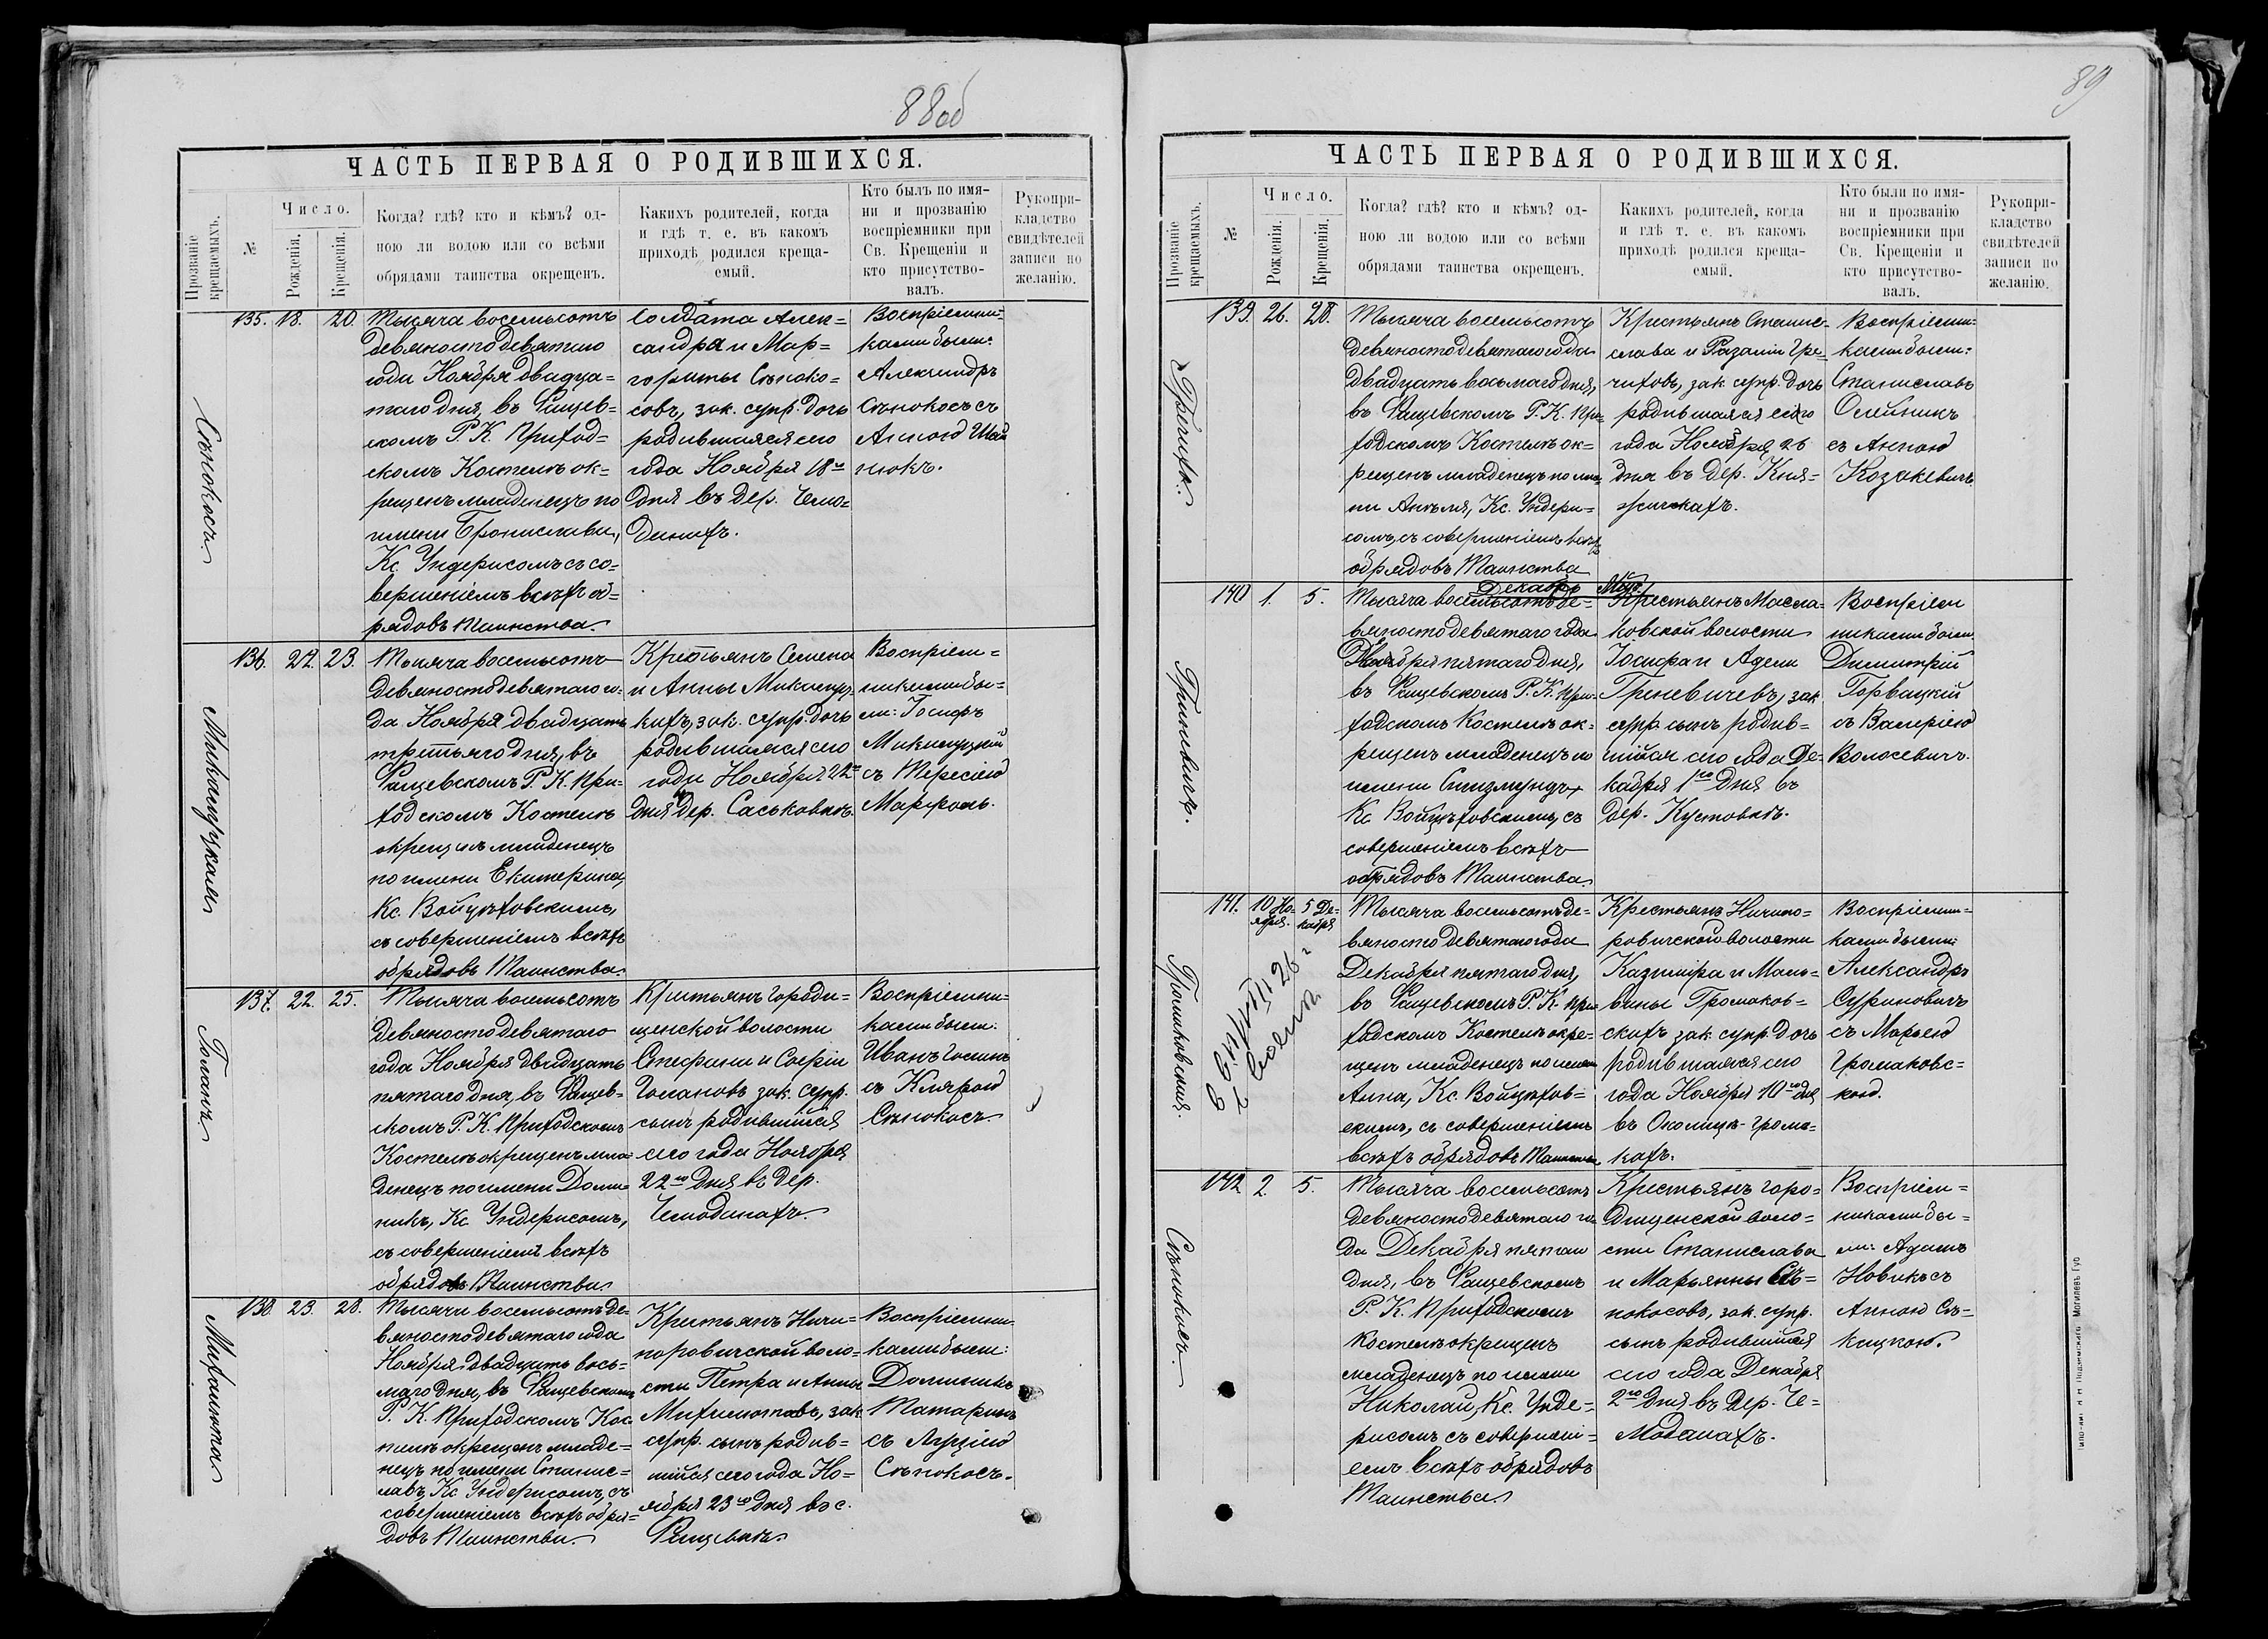 88об
ЧАСТЬ ПЕРВАЯ О РОДИВШИХСЯ.
Прозваніе крещаемыхъ.
№
Число.
Рожденія.
Крещенія.
Когда? гдѣ? кто и кѣмъ? од-
ною ли водою или со всѣми
обрядами таинства окрещенъ.
Какихъ родителей, когда
и гдѣ т. е. въ какомъ
приходѣ родился креща-
емый.
Кто былъ по имя-
ни и прозванію
воспріемники при
Св. Крещеніи и
кто присутство-
валъ.
Рукопри-
кладство
свидѣтелей
записи по
желанію.
Сѣнокосъ.
135. 18. 20.
Тысяча восемьсотъ
девяностодевятаго
года Ноября двадца-
таго дня, въ Ращев-
скомъ Р. К. Приход-
скомъ Костелѣ ок-
рещенъ младенецъ по
имени Бронислава,
Кс. Ундерисомъ съ со-
вершеніемъ всѣхъ об-
рядовъ Таинства.
Солдата Алек-
сандра и Мар-
гориты Сѣноко-
совъ, зак. супр. дочь
родившаяся сего
года Ноября 18го
дня въ дер. Чемо-
данахъ.
Воспріемни-
ками были:
Александръ
Сѣнокосъ съ
Анною
нюкъ.
136. 22. 23.
Тысяча восемьсотъ
девяностодевятаго го-
да Ноября двадцать
третьяго дня, въ
Ращевскомъ Р. К. При-
ходскомъ Костелѣ
окрещенъ младенецъ
по имени Екатерина,
Кс. Войцѣховскимъ,
съ совершеніемъ всѣхъ
обрядовъ Таинства.
Крестьянъ Семена
и Анны
кихъ, зак. супр. дочь
родившаяся сего
года Ноября 22го
дня въ дер. Саськовкѣ.
Воспріем-
никами бы-
ли: Іосифъ
съ Тересіею
Голанъ
137. 22. 25.
Тысяча восемьсотъ
девяностодевятаго
года Ноября двадцать
пятаго дня, въ Ращев-
скомъ Р. К. Приходскомъ
Костелѣ окрещенъ мла-
денецъ по имени Доми-
никъ, Кс. Ундерисомъ,
съ совершеніемъ всѣхъ
обрядовъ Таинства.
Крестьянъ Городи-
щенской волости
Стефана и Софіи
Голановъ зак. супр.
сынъ родившійся
сего года Ноября
22го дня въ дер.
Чемоданахъ.
Воспріемни-
ками были:
Иванъ Голанъ
съ Клярою
Сѣнокосъ.
138. 23. 28.
Тысяча восемьсотъ де-
вяностодевятаго года
Ноября двадцать вось-
маго дня, въ Ращевскомъ
Р. К. Приходскомъ Кос-
телѣ окрещенъ младе-
нецъ по имени Станис-
лавъ, Кс. Ундерисомъ, съ
совершеніемъ всѣхъ обря-
довъ Таинства.
Крестьянъ Ничи-
поровичской воло-
сти Петра и Анны
зак.
супр. сынъ родив-
шійся сего года Но-
ября 23го дня въ с.
Ращевкѣ.
Воспріемни-
ками были:
Доминикъ
Татаринъ
съ Луціею
Сѣнокосъ.
89
ЧАСТЬ ПЕРВАЯ О РОДИВШИХСЯ.
Прозваніе крещаемыхъ.
№
Число.
Рожденія.
Крещенія.
Когда? гдѣ? кто и кѣмъ? од-
ною ли водою или со всѣми
обрядами таинства окрещенъ.
Какихъ родителей, когда
и гдѣ т. е. въ какомъ
приходѣ родился креща-
емый.
Кто были по имя-
ни и прозванію
воспріемники при
Св. Крещеніи и
кто присутство-
валъ.
Рукопри-
кладство
свидѣтелей
записи по
желанію.
139. 26. 28.
Тысяча восемьсотъ
девяностодевятаго года
двадцать восьмаго дня,
въ Ращевскомъ Р. К. При-
ходскомъ Костелѣ ок-
рещенъ младенецъ по име-
ни Анѣля, Кс. Ундери-
сомъ, съ совершеніемъ всѣхъ
обрядовъ Таинства
Крестьянъ Станис-
слава и Розаліи Гре-
чиховъ, зак. супр. дочь
родившаяся сего
года Ноября 26
дня въ дер. Кня-
жичкахъ.
Воспріемни-
ками были:
Станиславъ
Олейникъ
съ Анною
Козакевичъ.
Декабрь Мцъ
Гриневичъ.
140 1. 5.
Тысяча восемьсотъ де-
вяностодевятаго года
Декабря пятаго дня,
въ Ращевскомъ Р. К. При-
ходскомъ Костелѣ ок-
рещенъ младенецъ по
имени Сигизмундъ,
Кс Войцѣховскимъ, съ
совершеніемъ всѣхъ
обрядовъ Таинства.
Крестьянъ Масла-
ковской волости
Іосифа и Адели
Гриневичевъ, зак
супр. сынъ родив-
шійся сего года Де-
кабря 1го дня въ
дер. Кустовкѣ.
Воспріем
никами были
Димитрій
Горвацкій
съ Валеріею
Волосевичъ.
Громаковская.
141. 10 Но-
ября. 5 Де-
кабря
Тысяча восемьсотъ де-
вяностодевятаго года
Декабря пятаго дня,
въ Ращевскомъ Р. К. При-
ходскомъ Костелѣ окре-
щенъ младенецъ по имени
Анна, Кс. Войцѣхов-
скимъ, съ совершеніемъ
всѣхъ обрядовъ Таинства
Крестьянъ Ничипо-
ровичской волости
Казиміра и Маль-
вины Громаков-
скихъ зак. супр. дочь
родившаяся сего
года Ноября 10го дня
въ Околицѣ-Грома-
кахъ.
Воспріемни-
ками были:
Александръ
Суриновичъ
съ Марьею
Громаковс-
кою.
Сѣнокосъ.
142 2. 5.
Тысяча восемьсотъ
девяностодевятаго го-
да Декабря пятаго
дня, въ Ращевскомъ
Р. К. Приходскомъ
Костелѣ окрещенъ
младенецъ по имени
Николай, Кс. Унде-
рисомъ съ совершені-
емъ всѣхъ обрядовъ
Таинства.
Крестьянъ Горо-
дищенской воло-
сти Станислава
и Марьянны Сѣ-
нокосовъ, зак. супр.
сынъ родившійся
сего года Декабря
2го дня въ дер. Че-
моданахъ.
Воспріем-
никами бы-
ли: Адамъ
Новикъ съ
Анною Сѣ-
кацкою.